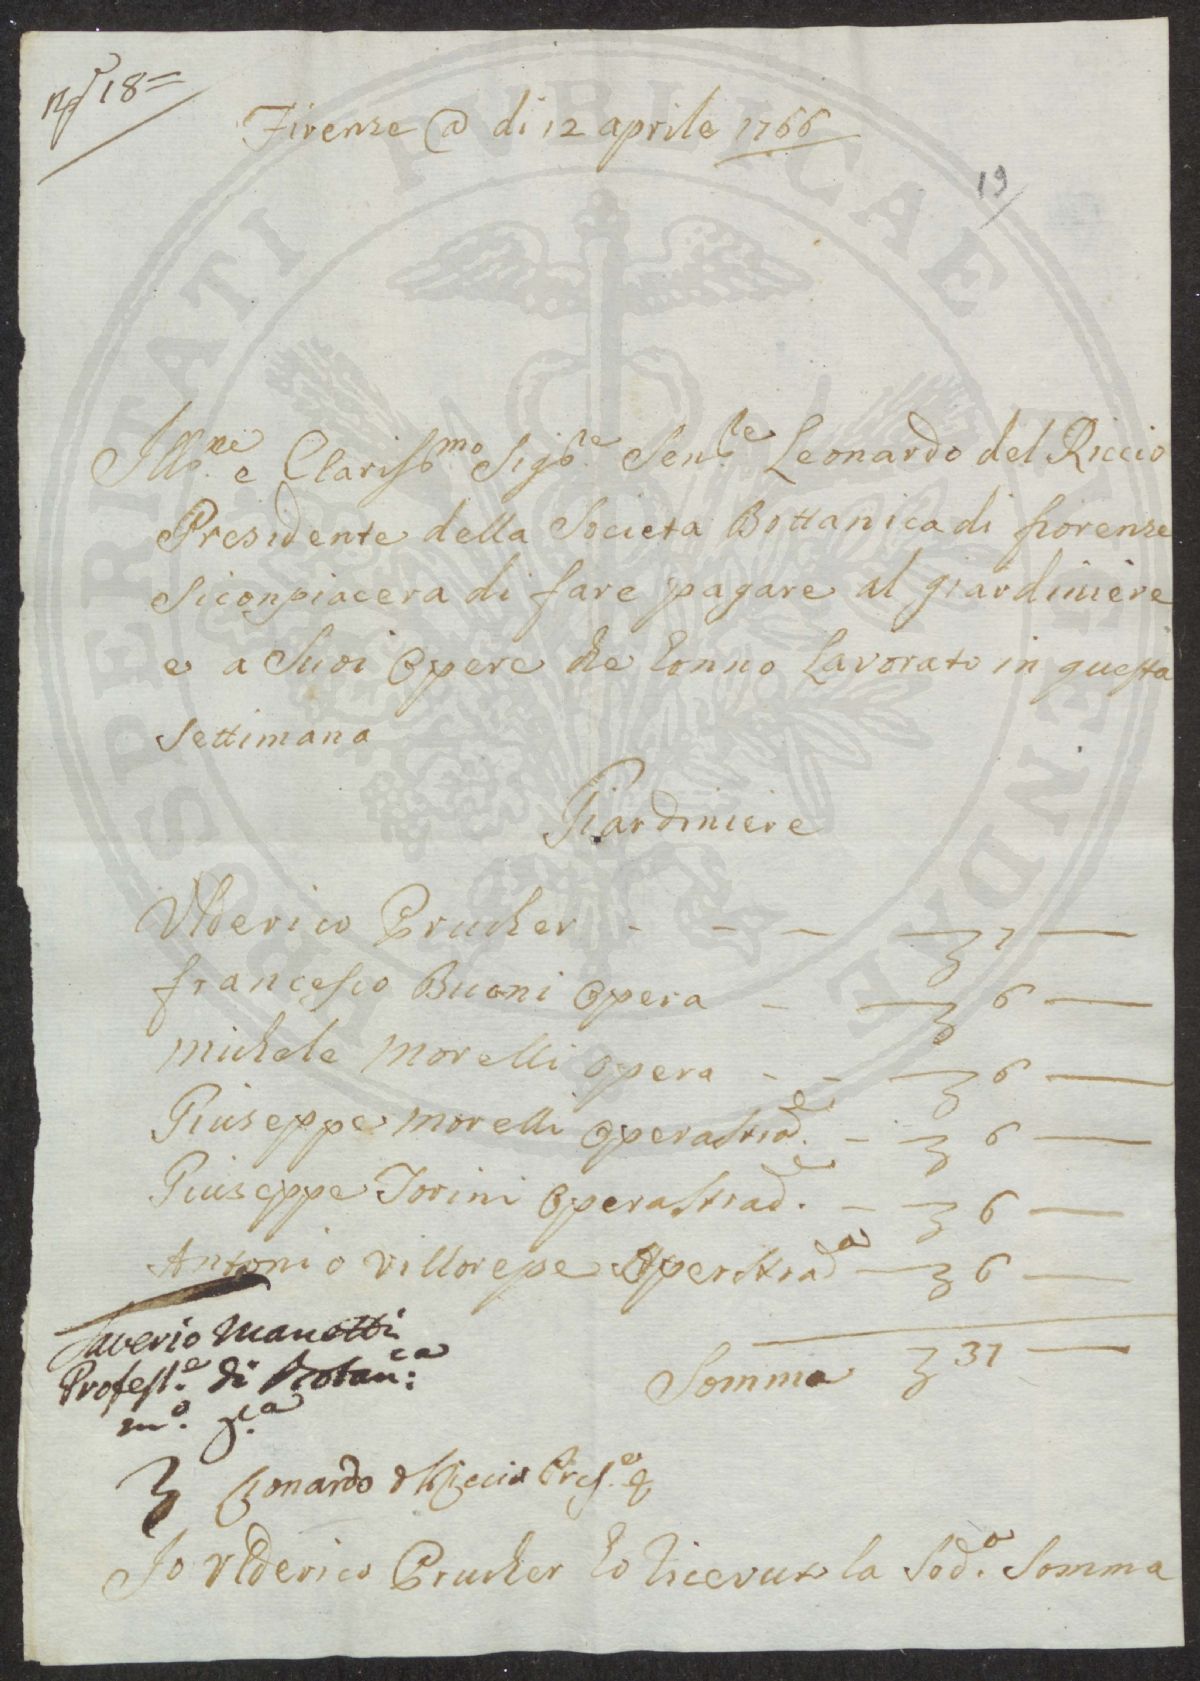 n° 18=
Firenze @ di 12 aprile 1766
19
Ill.me e Clariss.mo Sig.re Sen.re Leonardo del Riccio
Presidente della Societa Bottanica di fiorenze
Siconpiacera di fare pagare al giardiniere
e a Suoi Opere che honno Lavorato in questa
Settimana
Giardiniere
Vlderico Prucher - - - 7 —
francesco Buoni Opera - 6 —
michele morelli opera - - 6 —
Giuseppe morelli opera - 6 —
Giuseppe Torini Opera - 6 —
Antonio villorese - 6 —
Saverio Manetti
Profess.e di Botan.ca
m.o p.a
Somma 37 —
Leonardo del Riccio Pres.e
Io Vlderico Prucher ho ricevuto la Sod.a Somma
PROSPERITATI PVBLICAE AVGENDAE